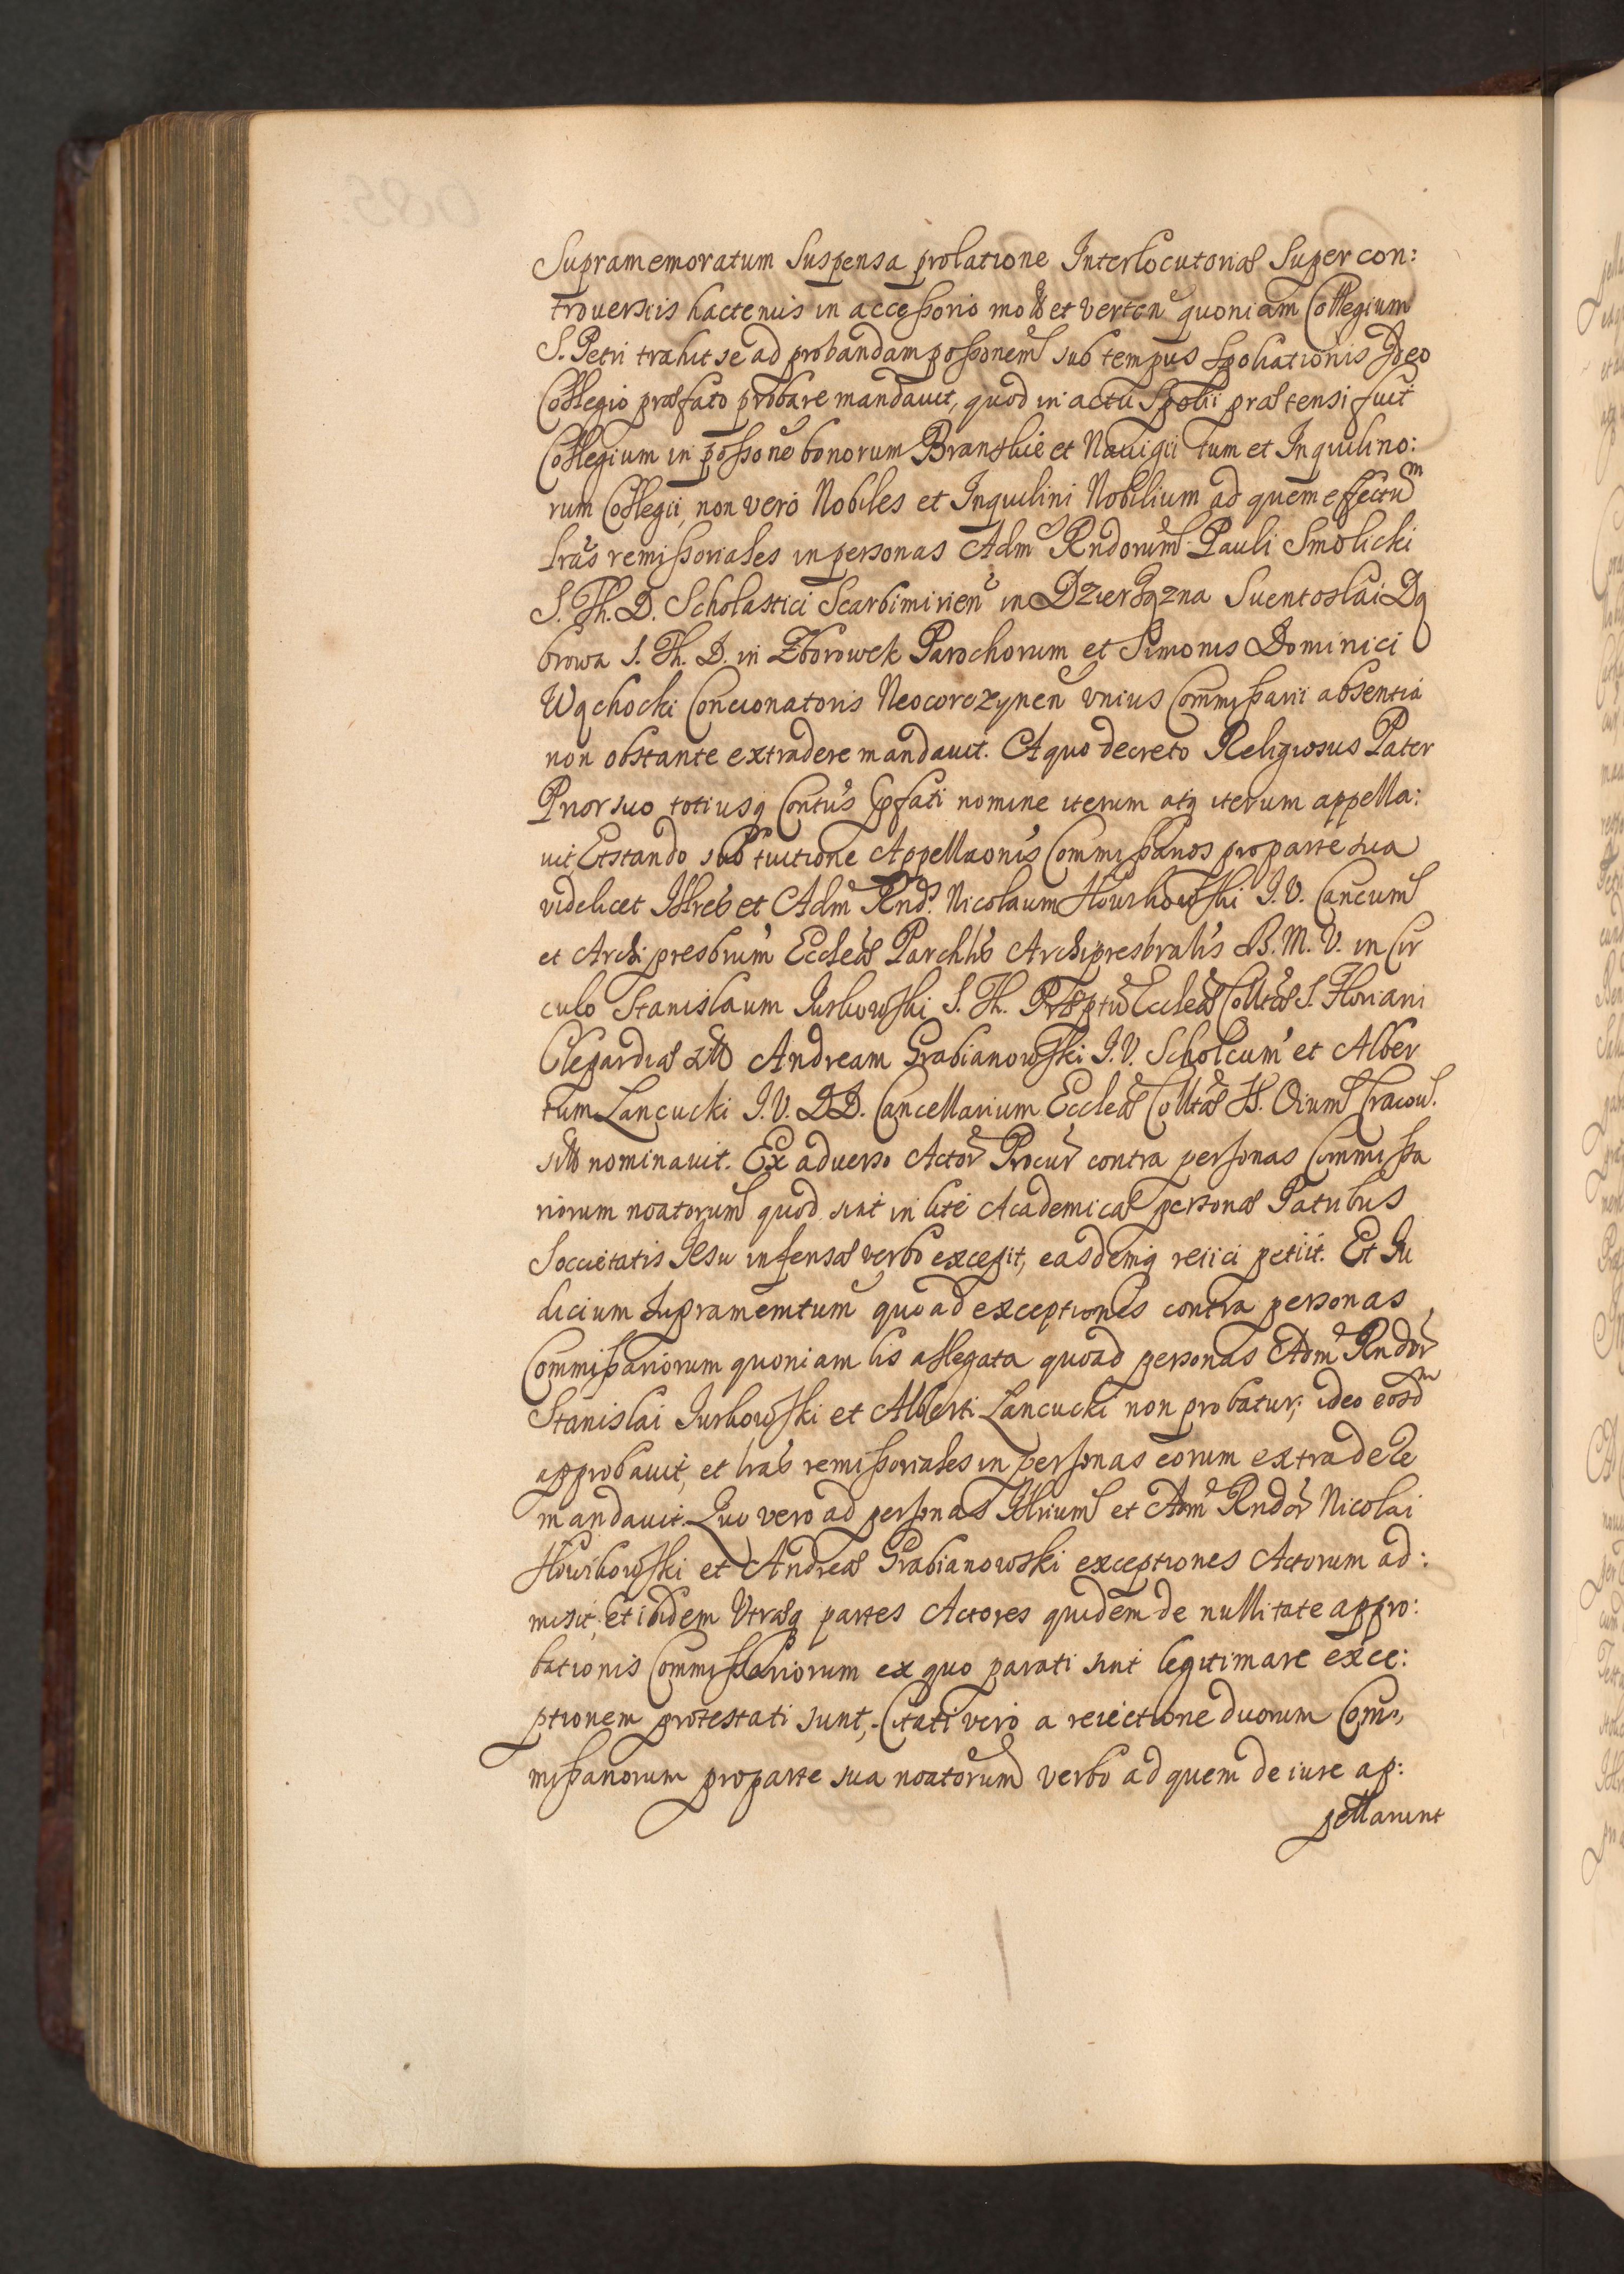 Supramemoratum Suspensa prolatione Interlocutoriæ Super con:
trouersiis hactenus in accessorio mot et verten quoniam Collegium
S. Petri trahit se ad probandam possonem sub tempus Spoliationis Ideo
Collegio præfato probare mandauit, quod in actu Spolii prætensi fuit
Collegium in possone bonorum Branskie et Nauigii tum et Inquilino:
rum Collegii, non vero Nobiles et Inquilini Nobilium ad quem effectum
lras remissoriales in personas Adm Rndorum Pauli Smolicki
S. Th. D. Scholastici Scarbimirien in Dzierążna Suentoslai Dą
browa S. Th. D. in Zborowek Parochorum et Simonis Dominici
Wąchocki Concionatoris Neocorczynen vnius Commissarii absentia
non obstante extradere mandauit. A quo decreto Religiosus Pater
Prior suo totiusq Contus pfati nomine iterum atq iterum appella:
uit, Et stando sub tuitione Appellaonis Commissarios pro parte sua
videlicet Illres et Adm Rnd. Nicolaum I. V. Cancum
et Archipresbrum Eccleæ Parchlis Archipresbralis B. M. V. in Cir
culo Stanislaum Jurkowski S. Th. Præptum Eccleæ Colltæ S. Floriani
Clepardiæ sitt Andream Grabianowski I. V. Scholcum et Alber
tum Lancucki I. V. DD. Cancellarium Eccleæ Colltæ SS. Oium Cracou.
sitt nominauit. Ex aduerso Actor Procur contra personas Commissa
riorum noatorum quod sint in lite Academicæ personæ Patribus
Societatis Jesu infensæ verbo excepit, easdemq reiici petiit. Et Iu
dicium supramemtum quo ad exceptiones contra personas
Commissariorum quoniam lis allegata quoad personas Adm Rndor
Stanislai Jurkowski et Alberti Lancucki non probatur, ideo eosdm
approbauit, et lras remissoriales in personas eorum extradere
mandauit. Quo vero ad personas Illrium et Adm Rndor Nicolai
et Andreæ Grabianowski exceptiones Actorum ad:
misit, et ibidem Vtræq partes Actores quidem de nullitate appro:
bationis Commissariorum ex quo parati sint legitimare exce:
ptionem protestati sunt, Citati vero a reiectione duorum Com:
missariorum pro parte sua noatorum verbo ad quem de iure ap:
pellarunt